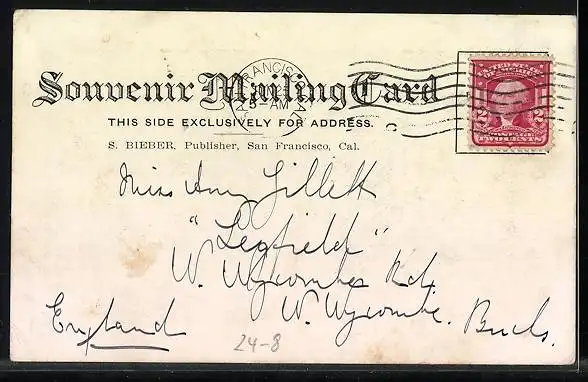 FRANCISCO
5-AM
Souvenir Mailing Card
UNITED STATES
OF AMERICA
THIS SIDE EXCLUSIVELY FOR ADDRESS.
2 2
POSTAGE
TWO CENTS
S. BIEBER, Publisher, San Francisco, Cal.
Miss Amy Gillett
"Legfield"
W. Wycombe Rd,
W. Wycombe.
England Bucks.
24-8